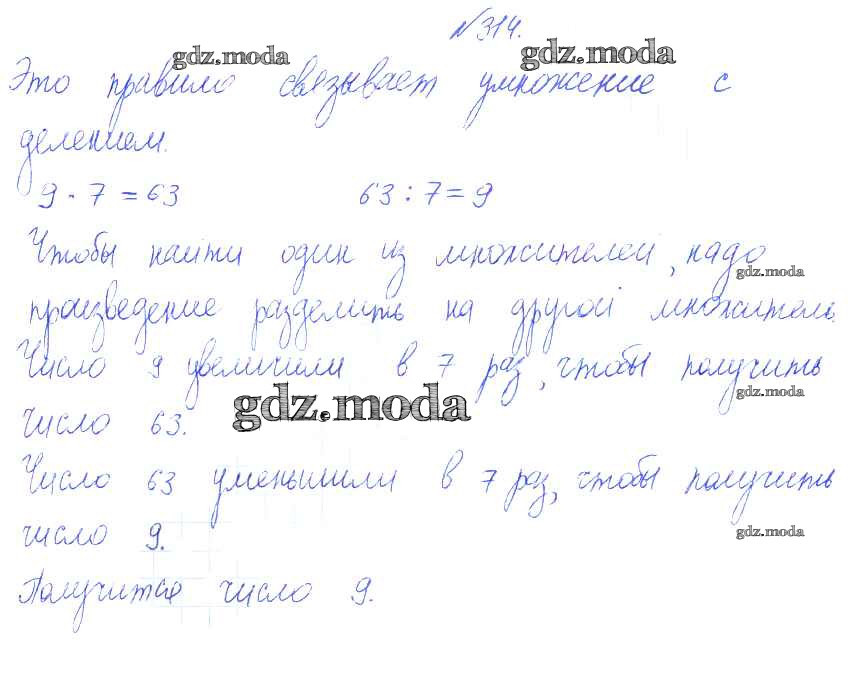 №314.
gdz.moda gdz.moda
Это правило связывает умножение с
делением.
9 · 7 = 63 63 : 7 = 9
Чтобы найти один из множителей, надо
gdz.moda
произведение разделить на другой множитель.
Число 9 увеличили в 7 раз, чтобы получить
gdz.moda
число 63.
gdz.moda
Число 63 уменьшили в 7 раз, чтобы получить
число 9.
gdz.moda
Получится число 9.